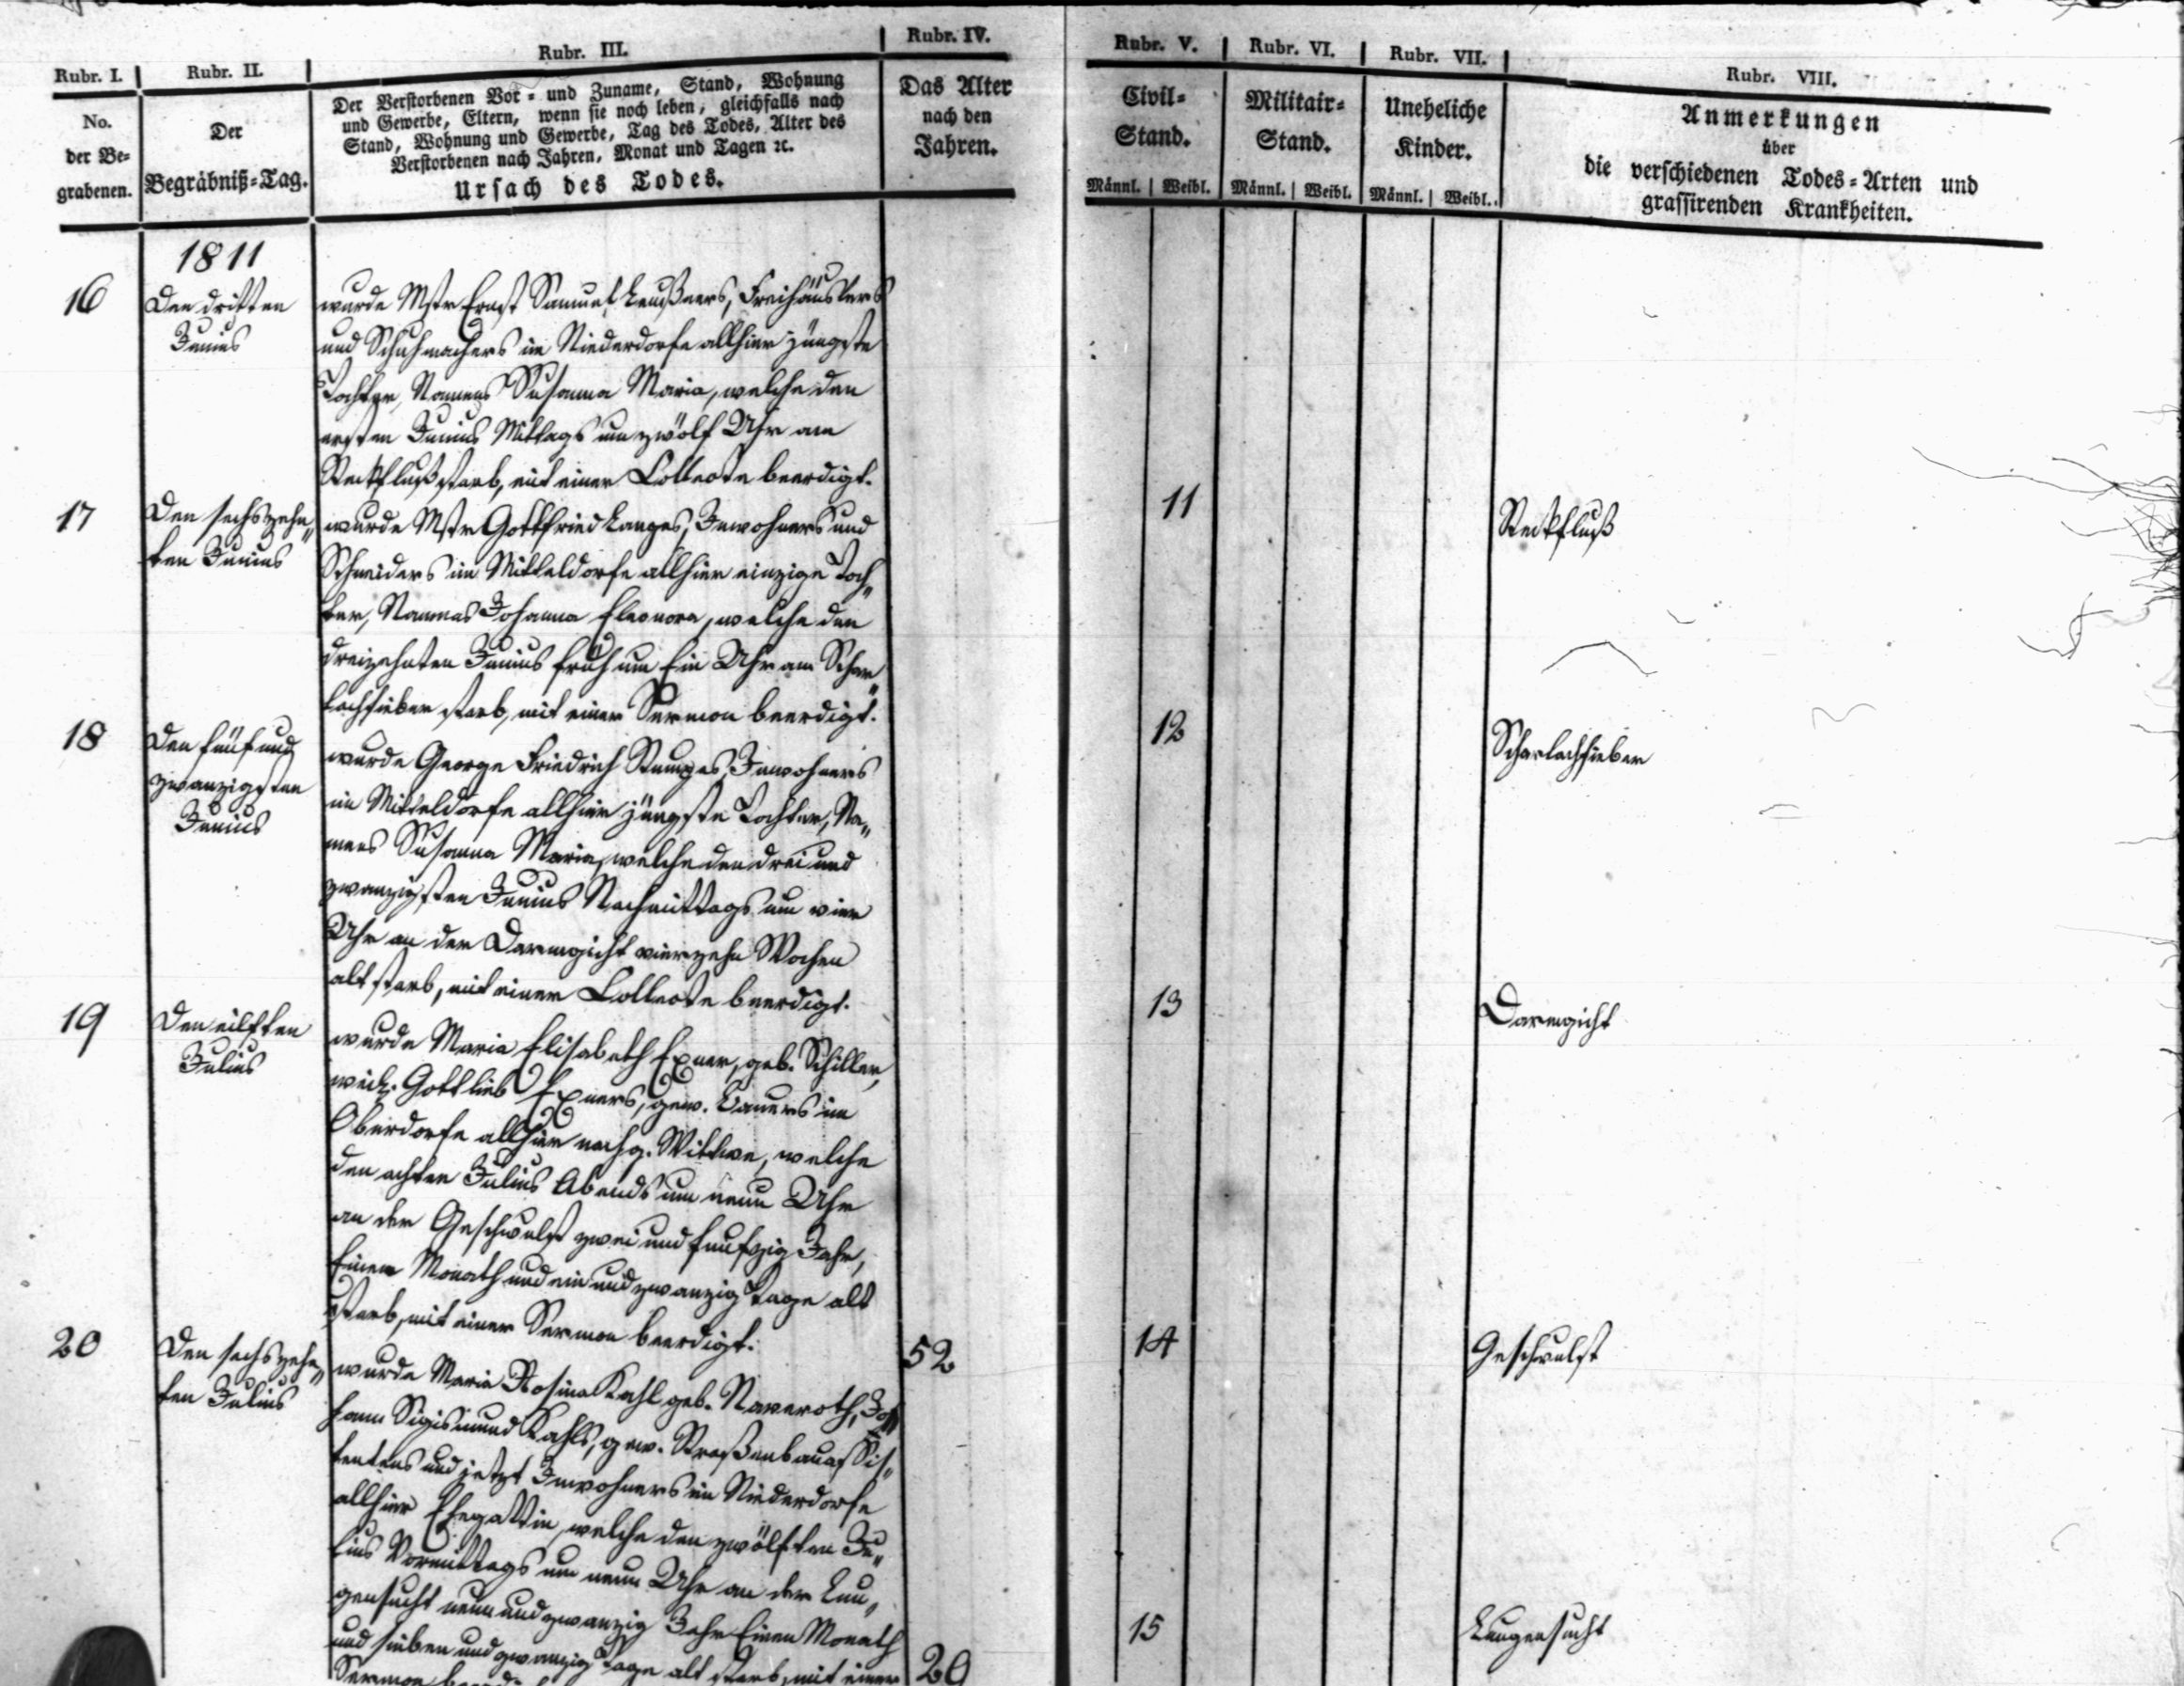 Rubr. I.
Rubr. II.
Rubr. III.
Rubr. IV.
Rubr. V.
Rubr. VI.
Rubr. VII.
Rubr. VIII.
No.
der Be-
grabenen.
Der
Begräbniß-Tag.
Der Verstorbenen Vor- und Zuname, Stand, Wohnung
und Gewerbe, Eltern, wenn sie noch leben, gleichfalls nach
Stand, Wohnung und Gewerbe, Tag des Todes, Alter des
Verstorbenen nach Jahren, Monat und Tagen ꝛc.
Ursach des Todes.
Das Alter
nach den
Jahren.
Civil-
Stand.
Männl. Weibl.
Militair-
Stand.
Männl. Weibl.
Uneheliche
Kinder.
Männl. Weibl.
Anmerkungen
über
die verschiedenen Todes-Arten und
grassirenden Krankheiten.
1811
16
Den dritten
Junius
wurde Mstr Ernst Samuel Leußners, Freihäuslers
und Schuhmachers im Niederdorfe allhier jüngste
Tochter, Namens Susanna Maria, welche den
ersten Junius Mittags um zwölf Uhr am
Steckfluß starb, mit einer Collecte beerdigt.
11
Steckfluß
17
Den sechszehn„
ten Junius
wurde Mstr Gottfried Langes, Inwohners und
Schneiders im Mitteldorfe allhier einzige Toch„
ter, Namens Johanna Eleonora, welche den
dreizehnten Junius früh um Ein Uhr am Schar„
lachfieber starb, mit einer Sermon beerdigt.
12
Scharlachfieber
18
Den fünf und
zwanzigsten
Junius
wurde George Friedrich Stumpes, Inwohners
im Mitteldorfe allhier jüngste Tochter, Na„
mens Susanna Maria, welche den drei und
zwanzigsten Junius Nachmittags um vier
Uhr an der Darmgicht vierzehn Wochen
alt starb, mit einer Collecte beerdigt.
13
Darmgicht
19
Den eilften
Julius
wurde Maria Elisabeth Exner, geb. Schiller,
weil. Gottlieb Exners, gew. Bauers im
Oberdorfe allhier nachg. Wittwe, welche
den achten Julius Abends um neun Uhr
an der Geschwulst zwei und funfzig Jahr,
Einen Monath und ein und zwanzig Tage alt
starb, mit einer Sermon beerdigt.
52
14
Geschwulst
20
Den sechszehn„
ten Julius
wurde Maria Rosina Kahl geb. Naveroth, Jo„
hann Sigismund Kahls, gew. Straßenbauassis„
tentens und jetzt Inwohners im Niederdorfe
allhier Ehegattin, welche den zwölften Ju„
lius Vormittags um neun Uhr an der Lun„
gensucht neun und zwanzig Jahr Einen Monath
und sieben und zwanzig Tage alt starb, mit einer
Sermon
29
15
Lungensucht